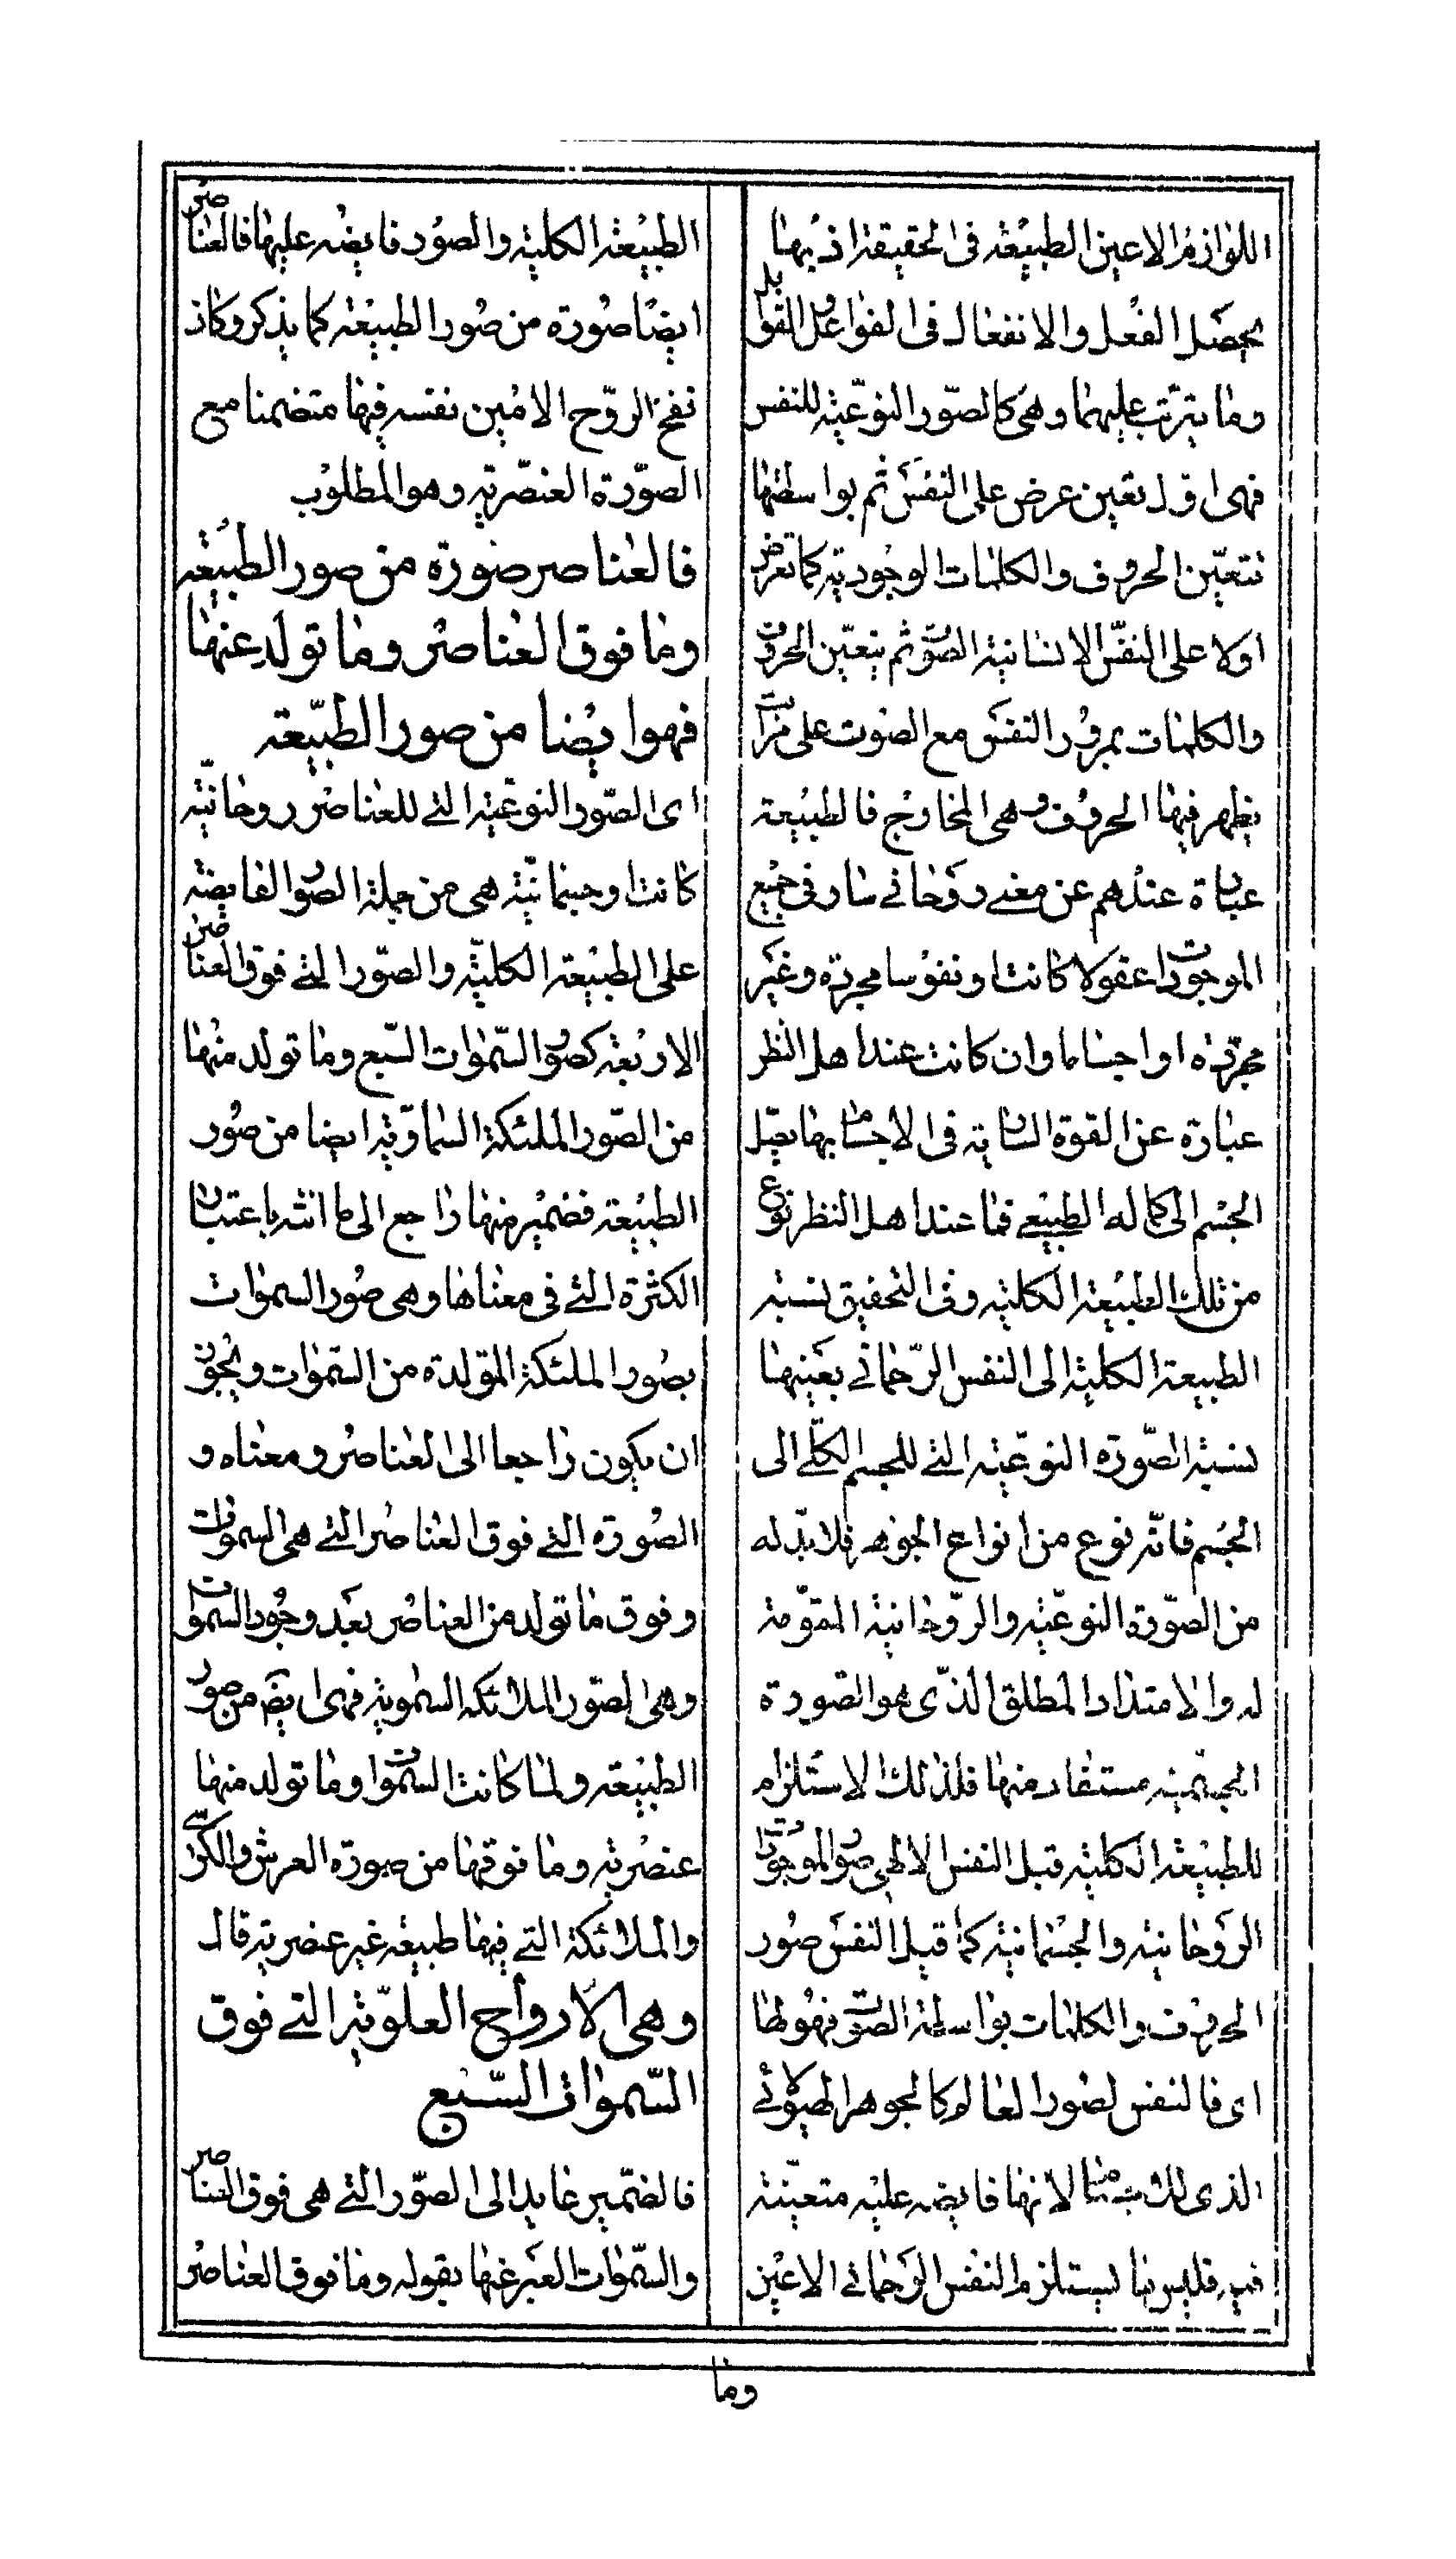 اللوازم الا عين الطبيعة فى الحقيقة اذ بها
يحصل الفعل والانفعال فى الفواعل والقوابل
وما يترتب عليهما وهى كالصور النوعية للنفس
فهى اول تعين عرض على النفس ثم بواسطتها
تتعين الحروف والكلمات الوجودية كما تعرض
اولا على النفس الانسانية الصوت ثم يتعين الحروف
والكلمات بمرور النفس مع الصوت على مراتب
يظهر فيها الحروف وهى المخارج فالطبيعة
عبارة عندهم عن معنى روحانى سار فى جميع
الموجودات عقولا كانت او نفوسا مجردة وغير
مجردة او اجساما وان كانت عند اهل النظر
عبارة عن القوة السارية فى الاجسام بها يصل
الجسم الى كماله الطبيعى فما عند اهل النظر نوع
من تلك الطبيعة الكلية وفى التحقيق نسبة
الطبيعة الكلية الى النفس الرحمانى بعينها
نسبة الصورة النوعية التى للجسم الكلى الى
الجسم فانه نوع من انواع الجوهر فلا بد له
من الصورة النوعية والروحانية المقومة
له والامتداد المطلق الذى هو الصورة
الجسمية مستفاد منها فلذلك الاستلزام
للطبيعة الكلية قبل النفس الالهى صور الموجودات
الروحانية والجسمانية كما قبل النفس صور
الحروف والكلمات بواسطة الصوت فهو لها
اى فالنفس لصور العالم كالجوهر الهيولانى
الذى لك لانها فايضه عليه متعينة
فيه فليس ما يستلزم النفس الرحمانى الا عين
الطبيعة الكلية والصور فايضه عليها فالعناصر
ايضا صورة من صور الطبيعة كما يذكر وكان
نفخ الروح الامين نفسه فيها متضمنا مع
الصورة العنصرية وهو المطلوب
فالعناصر صورة من صور الطبيعة
وما فوق العناصر وما تولد عنها
فهو ايضا من صور الطبيعة
اى الصور النوعية التى للعناصر روحانية
كانت او جسمانية هى من جملة الصور الفايضة
على الطبيعة الكلية والصور التى فوق العناصر
الاربعة كصور السموات السبع وما تولد منها
من الصور الملئكة السماوية ايضا من صور
الطبيعة فضمير منها راجع الى ما انثه باعتبار
الكثرة التى فى معناها وهى صور السموات
بصور الملئكة المتولدة من السموات ويجوز
ان يكون راجعا الى العناصر ومعناه و
الصورة التى فوق العناصر التى هى السموات
وفوق ما تولد من العناصر بعد وجود السموات
وهى الصور الملائكة السموية فهى ايضا من صور
الطبيعة ولما كانت السموات وما تولد منها
عنصرية وما فوقها من صورة العرش والكرسى
والملائكة التى فيها طبيعة غير عنصرية قال
وهى الارواح العلوية التى فوق
السموات السبع
فالضمير عايد الى الصور التى هى فوق العناصر
والسموات المعبر عنها بقوله وما فوق العناصر
وما